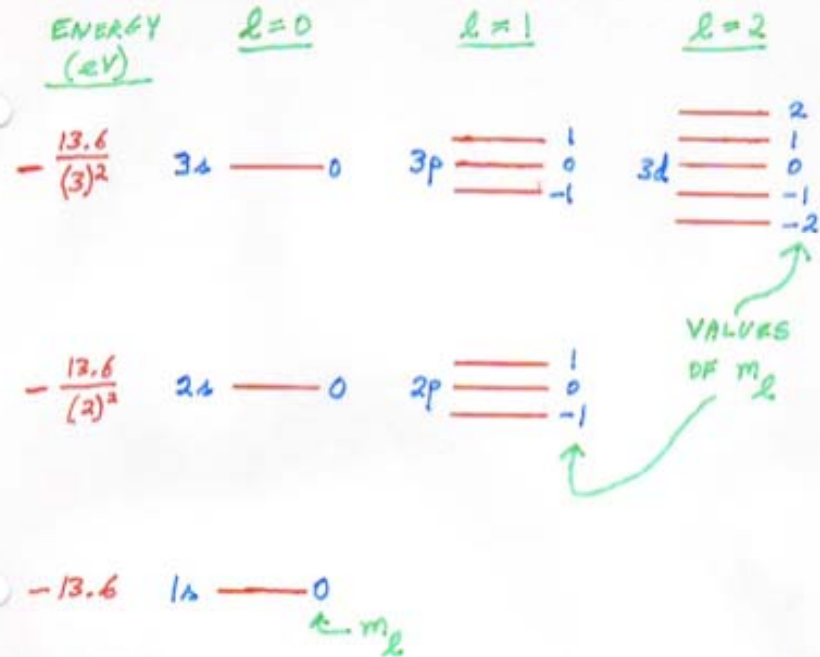 ENERGY l=0 l=1 l=2
(eV)
2
1 1
- 13.6/(3)² 3s 0 3p 0 3d 0
-1 -1
-2
VALUES
OF m_l
1
- 13.6/(2)² 2s 0 2p 0
-1
-13.6 1s 0
m_l